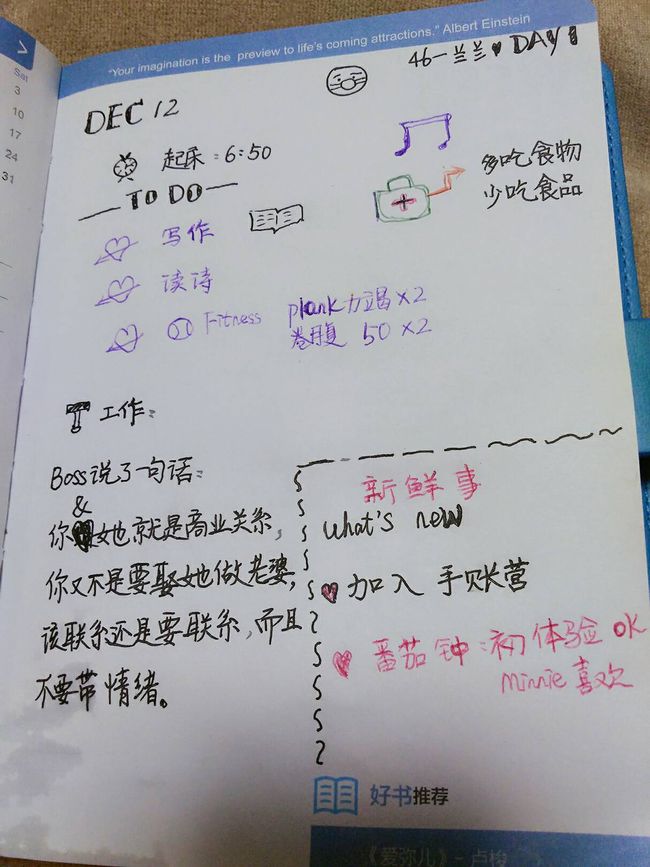 "Your imagination is the preview to life's coming attractions." Albert Einstein
>
Sat
3
10
17
24
31
46-兰兰♥DAY1
DEC 12
起床:6:50
TO DO
多吃食物
少吃食品
写作
读诗
Fitness plank力竭×2
卷腹 50×2
工作:
Boss说了一句话:
&
你她就是商业关系,
你又不是要娶她做老婆,
该联系还是要联系,而且
不要带情绪。
新鲜事
What's new
加入 手账营
番茄钟:初体验 OK
Minnie喜欢
好书推荐
《爱弥儿》-卢梭